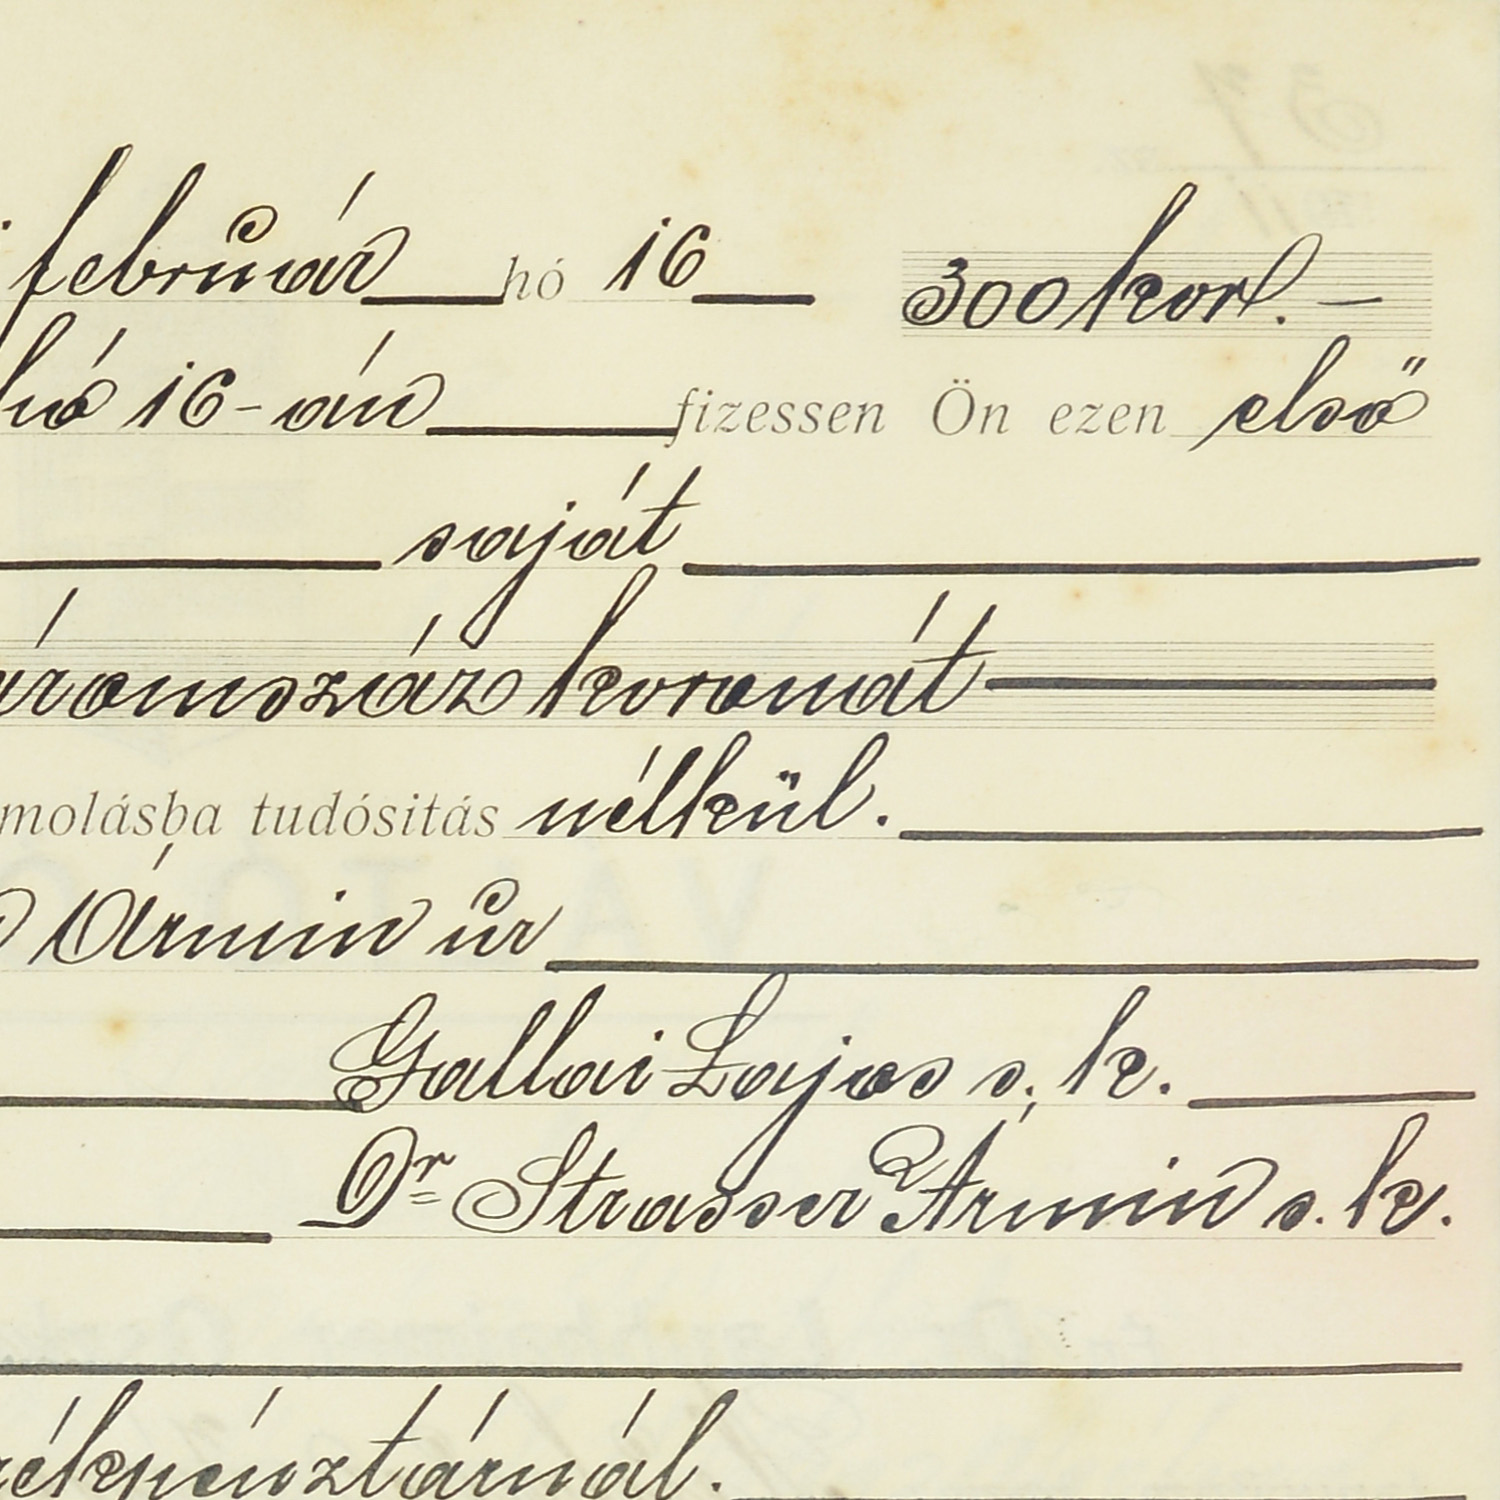 február hó 16 300 kor. —
hó 16-án fizessen Ön ezen első
saját
áromszáz koronát
molásba tudósitás nélkül.
Ármin úr
Gallai Lajos s. k.
Dr Strasser Ármin s. k.
ékpénztárnál.